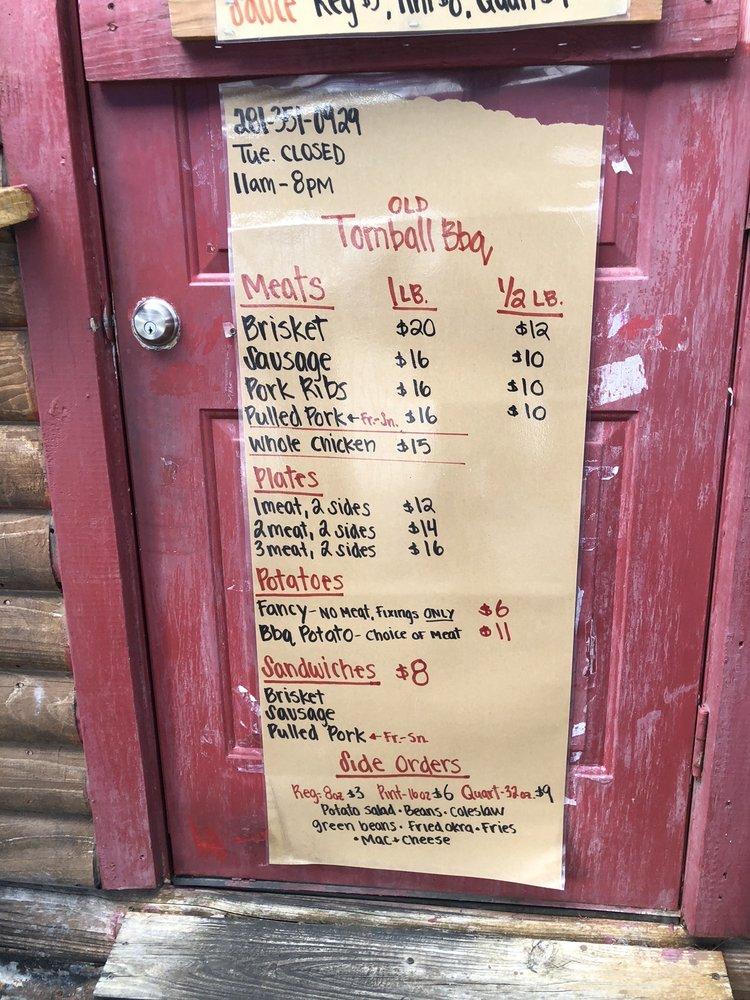 Sauce Reg $3, Pint $6, Quart $9
281-351-0929
Tue. CLOSED
11am-8pm
OLD
Tomball Bbq
Meats 1 LB. 1/2 LB.
Brisket $20 $12
Sausage $16 $10
Pork Ribs $16 $10
Pulled Pork ← Fr.-Sn. $16 $10
Whole Chicken $15
Plates
1 meat, 2 sides $12
2 meat, 2 sides $14
3 meat, 2 sides $16
Potatoes
Fancy - NO Meat, Fixings ONLY $6
Bbq Potato - Choice of Meat $11
Sandwiches $8
Brisket
Sausage
Pulled Pork ← Fr.-Sn.
Side Orders
Reg-8oz $3 Pint-16oz $6 Quart-32oz $9
Potato salad • Beans • Coleslaw
green beans • Fried okra • Fries
• Mac + Cheese